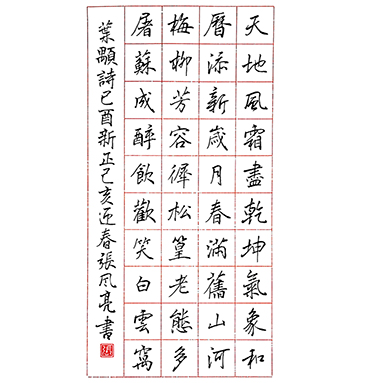 天地風霜盡乾坤氣象和
曆添新歲月春滿舊山河
梅柳芳容徲松篁老態多
屠蘇成醉飲歡笑白雲窩
葉顒詩己酉新正己亥迎春張风亮書